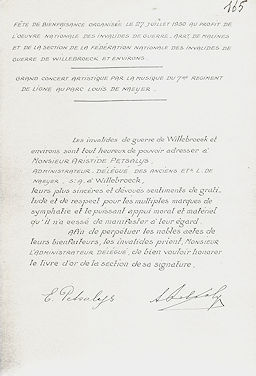 165
FÊTE DE BIENFAISANCE ORGANISÉE LE 27 JUILLET 1930 AU PROFIT DE
L'OEUVRE NATIONALE DES INVALIDES DE GUERRE. ARRT. DE MALINES
ET DE LA SECTION DE LA FÉDÉRATION NATIONALE DES INVALIDES DE
GUERRE DE WILLEBROECK ET ENVIRONS.
GRAND CONCERT ARTISTIQUE PAR LA MUSIQUE DU 7ME RÉGIMENT
DE LIGNE AU PARC LOUIS DE NAEYER.
Les invalides de guerre de Willebroeck et
environs sont tout heureux de pouvoir adresser à
MONSIEUR ARISTIDE PETSALYS,
ADMINISTRATEUR-DÉLÉGUÉ DES ANCIENS ETS L. DE
NAEYER. S.A. à Willebroeck.
leurs plus sincères et dévoués sentiments de grati-
tude et de respect pour les multiples marques de
symphatie et le puissant appui moral et matériel
qu'il n'a cessé de manifester à leur égard.
Afin de perpetuer les nobles actes de
leurs bienfaiteurs, les invalides prient, MONSIEUR
L'ADMINISTRATEUR DÉLÉGUÉ, de bien vouloir honorer
le livre d'or de la section de sa signature.
E. Petsalys